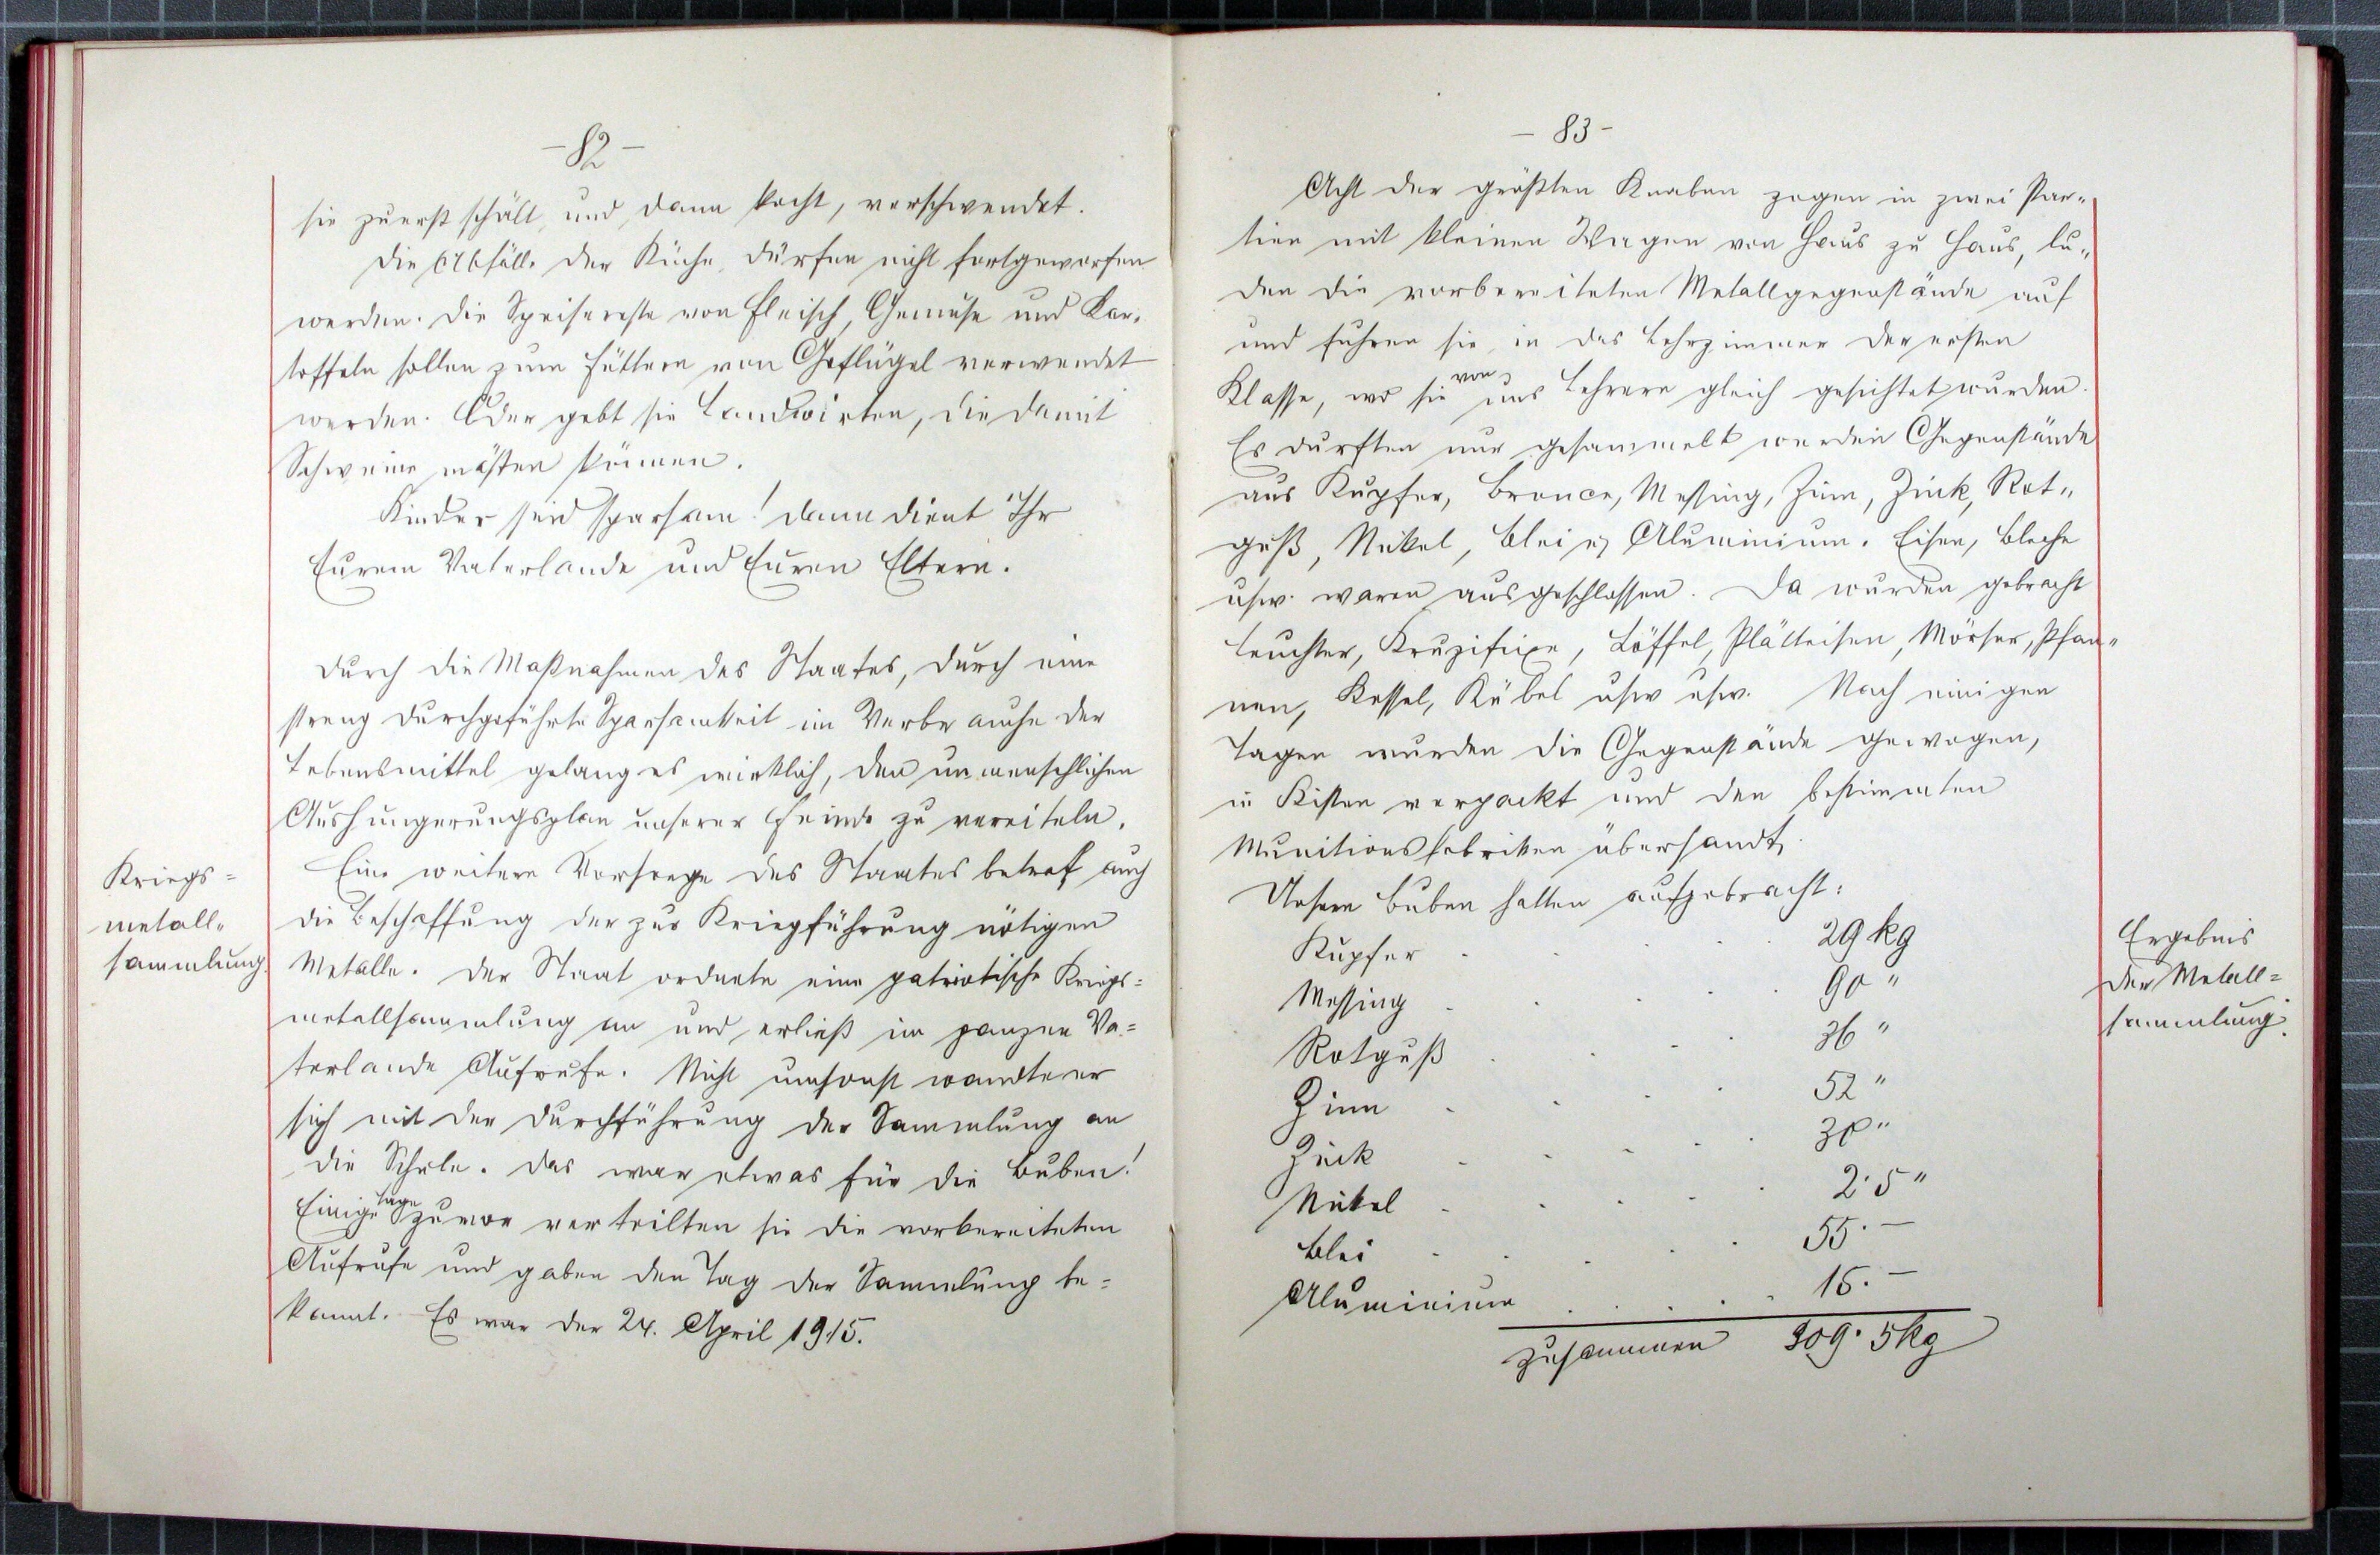 - 82 -
sie zuerst schält, und dann kocht, verschwendet.
Die Abfälle der Küche, dürfen nicht fortgeworfen
werden. Die Speisereste von Fleisch, Gemüse und Kar-
toffeln sollen zum Füttern von Geflügel verwendet
werden. Oder gebt sie Landwirten, die damit
Schweine mästen können.
Kinder seid sparsam! Dann dient Ihr
Eurem Vaterlande und Euren Eltern.
Durch die Maßnahmen des Staates, durch eine
streng durchgeführte Sparsamkeit im Verbrauche der
Lebensmittel gelang es wirklich, den unmenschlichen
Aushungerungsplan unserer Feinde zu vereiteln.
Kriegs=
metall-
sammlung.
Eine weitere Vorsorge des Staates betraf auch
die Beschaffung der zur Kriegführung nötigen
Metalle. Der Staat ordnete eine patriotische Kriegs=
metallsammlung an und erließ im ganzen Va=
terlande Aufrufe. Nicht umsonst wandte er
sich mit der Durchführung der Sammlung an
die Schule. Das war etwas für die Buben!
Einige Tage zuvor verteilten sie die vorbereiteten
Aufrufe und gaben den Tag der Sammlung be=
kannt. Es war der 24. April 1915.
- 83 -
Acht der größten Knaben zogen in zwei Par-
tien mit kleinen Wagen von Haus zu Haus, lu-
den die vorbereiteten Metallgegenstände auf
und fuhren sie in das Lehrzimmer der ersten
Klasse, wo sie von uns Lehrern gleich gesichtet wurden.
Es durften nur gesammelt werden Gegenstände
aus Kupfer, Bronce, Messing, Zinn, Zink, Rot-
guß, Nickel, Blei u. Aluminium. Eisen, Bleche
usw. waren ausgeschlossen. Da wurden gebracht
Leuchter, Kruzifixe, Löffel, Plätteisen, Mörser, Pfan-
nen, Kessel, Kübel usw usw. Nach einigen
Tagen wurden die Gegenstände gewogen,
in Kisten verpackt und den bestimmten
Munitionsfabriken übersandt.
Unsere Buben hatten aufgebracht:
Ergebnis
der Metall=
sammlung.
Kupfer . . . . 29 kg
Messing . . . . 90 "
Rotguß . . . . 36 "
Zinn . . . . 52 "
Zink . . . . 30 "
Nickel . . . . 2·5 "
Blei . . . . 55·—
Aluminium . . . . . 15·—
zusammen 309·5 kg